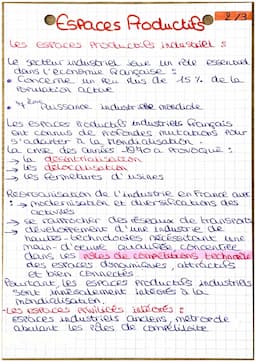 Espaces Productifs
2/3
Les espaces productifs industriel :
Le secteur industriel joue un rôle essentiel
dans l'économie française :
• Concerne un peu plus de 15 % de la
population active
Puissance industrielle mondiale
Les espaces productifs industriels français
ont connus de profondes mutations pour
s'adapter à la mondialisation.
La crise des années a provoqué :
→ la désintrialisation
→ les délocalisation
→ les fermetures d'usines
Réorganisation de l'industrie en France avec
: → modernisation et diversifications des
activités
→ rapprocher des réseaux de transports
→ développement d'une industrie de
hautes-technologies nécéssitant une
main-d'œuvre qualifiée, concentrée
dans les pôles de compétitions technopole
des espaces dynamiques, attractifs
et bien connectés.
Pourtant, les espaces productifs industriels
sont inégalement intégrés à la
mondialisation.
- Les espaces privilégiés intégrés :
espaces industriels anciens, métropole
les pôles de compétitivité